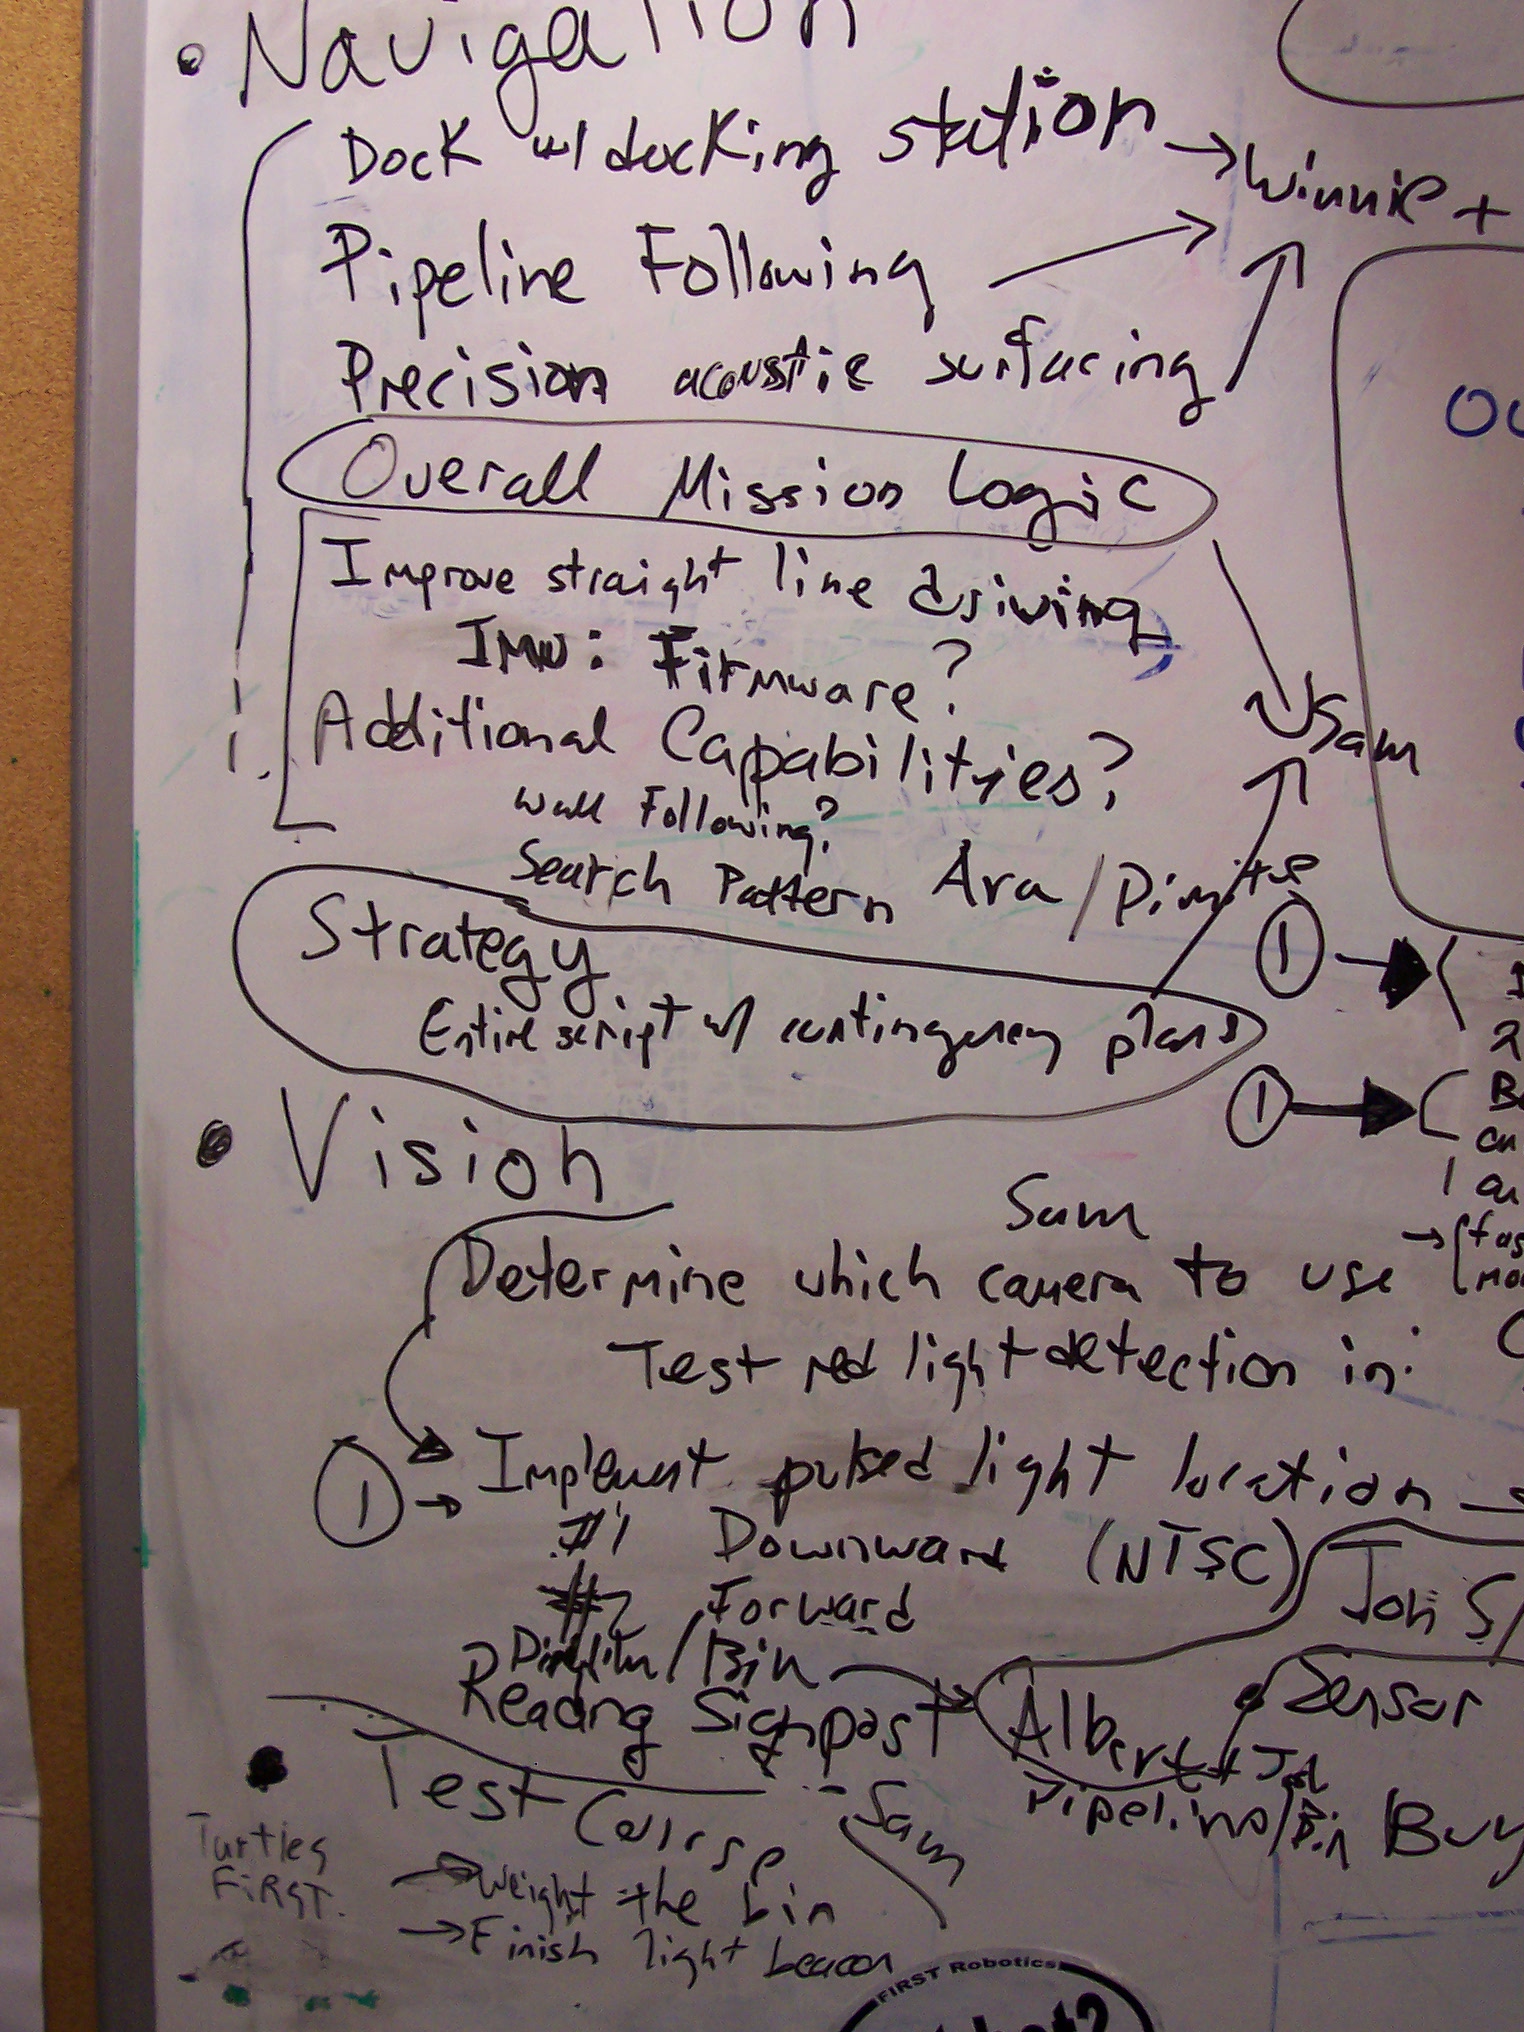 Navigation
Dock w/ docking station → Winnie +
Pipeline Following
Precision acoustic surfacing
Overall Mission Logic
Improve straight line driving
IMU: Firmware?
Sam
Additional Capabilities?
Wall Following?
Search Pattern Ara /
Strategy
Entire script w/ contingency plans
1
1
Vision
Sam
Determine which camera to use
Test red light detection in:
1 → Implement pulsed light location
#1 Downward (NTSC)
#2 Forward
Pipeline / Bin
Reading Signpost
Jon S/
Sensor
Albert +
Pipeline/Bin
Buy
Test Course
Sam
Turtles
FiRST.
→ Weight the bin
→ Finish light beacon
FIRST Robotics